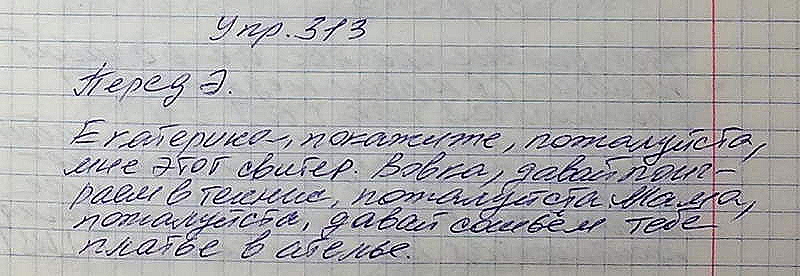 Упр. 313
Перед Э.
Екатерина, покажите, пожалуйста,
мне этот свитер. Вовка, давай поиг-
раем в теннис, пожалуйста. Мама,
пожалуйста, давай сошьём тебе
платье в ателье.